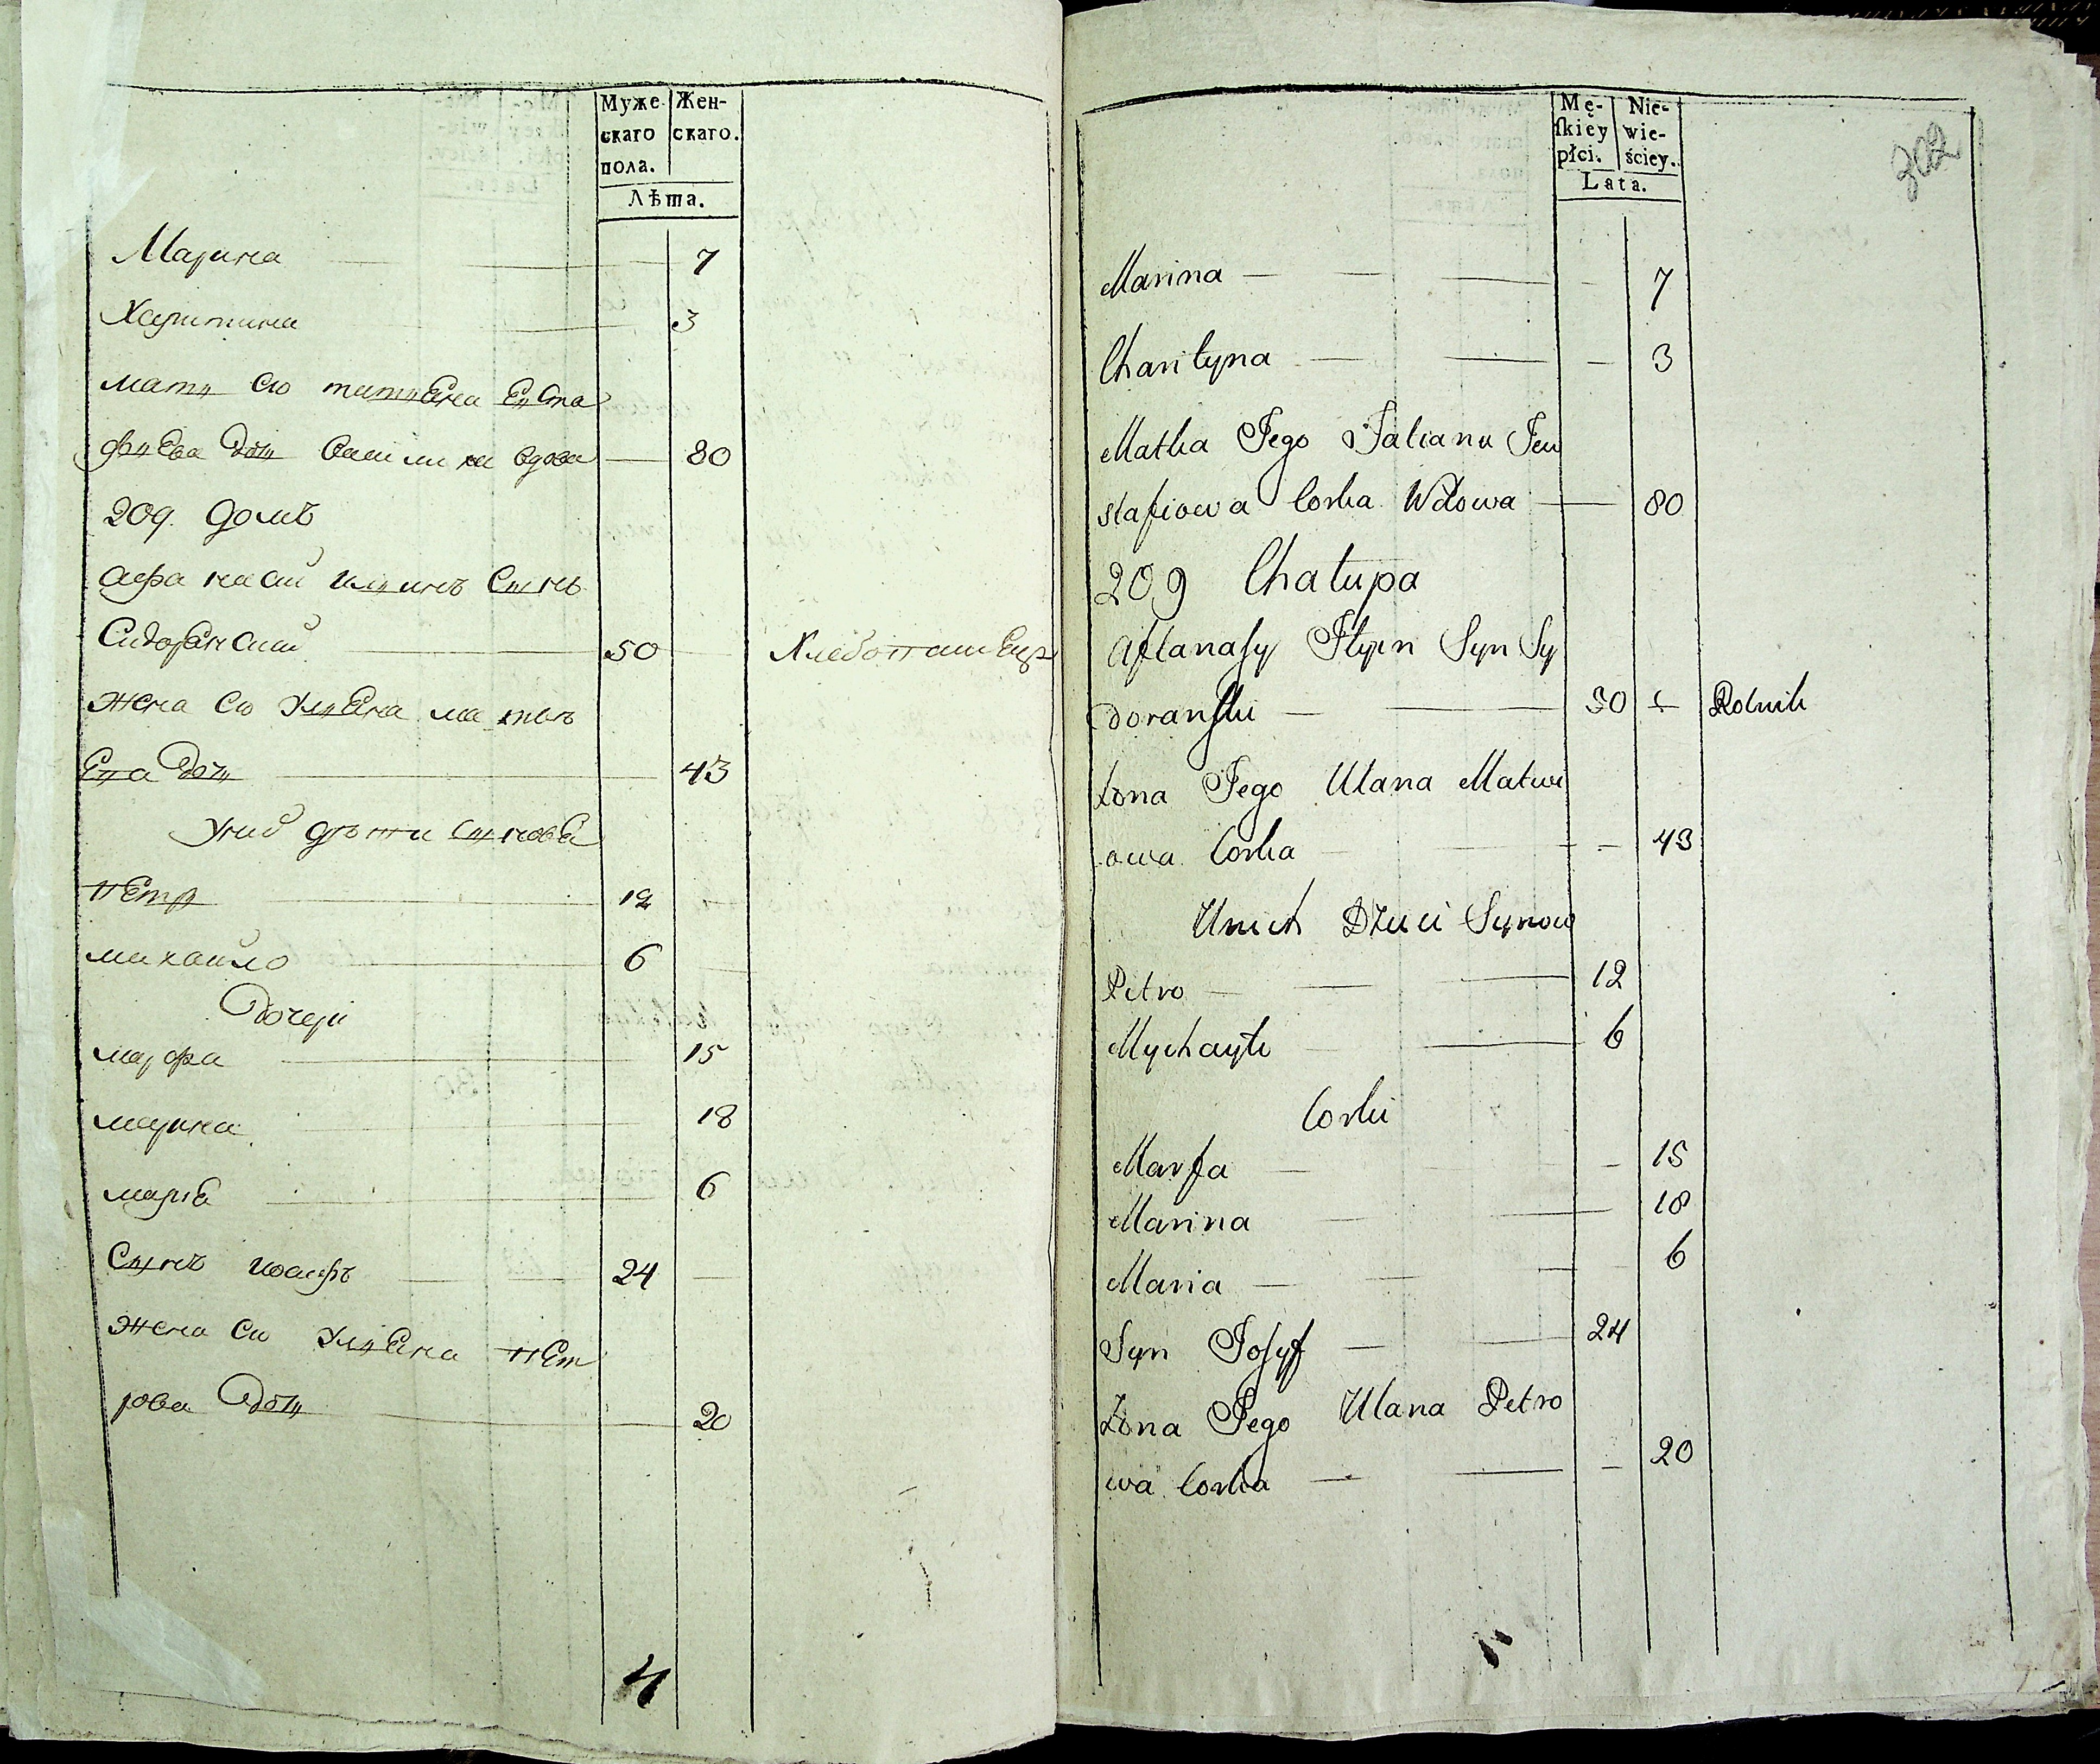 Муже
скаго
пола.
Жен-
скаго.
Лѣта.
Марина 7
Харитина 3
мать его татьяна Евста
фьева дочь вдова 80
209. домъ
Афанасий Ильинъ Сынъ
Сидоранский 50 Хлебопашецъ
жена его Ульяна матве
ева дочь 43
Уних дѣти Сыновья
Петръ 12
михайло 6
дочери
марфа 15
марина 18
мария 6
Сынъ иосифъ 24
жена его Ульяна Пет
рова дочь 20
4
Mę-
skiey
płci.
Nie-
wie-
ściey.
Lata.
302
Marina 7
Charityna 3
Matka Jego Taliana Jeu
stafiowa Corka Wdowa 80
209 Chałupa
Aftanasy Ilyin Syn Sy
doranski 50 Rolnik
Żona Jego Ulana Matwi
owa Corka 43
Unich Dzieci Synow
Petro 12
Mychayło 6
Corki
Marfa 15
Marina 18
Maria 6
Syn Josyf 24
Żona Jego Ulana Petro
wa Corka 20